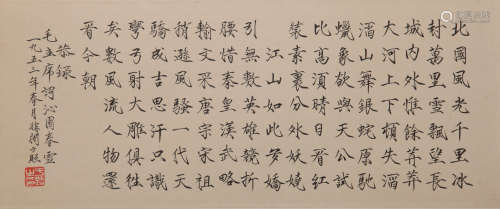 北國風光千里冰
封萬里雪飄望長
城內外惟餘莽莽
大河上下頓失滔
滔山舞銀蛇原馳
蠟象欲與天公試
比高須晴日看紅
裝素裹分外妖嬈
江山如此多嬌
引無數英雄競折
腰惜秦皇漢武略
輸文采唐宗宋祖
稍遜風騷一代天
驕成吉思汗只識
彎弓射大雕俱往
矣數風流人物還
看今朝
恭錄
毛主席詞沁園春雪
一九五三年春月